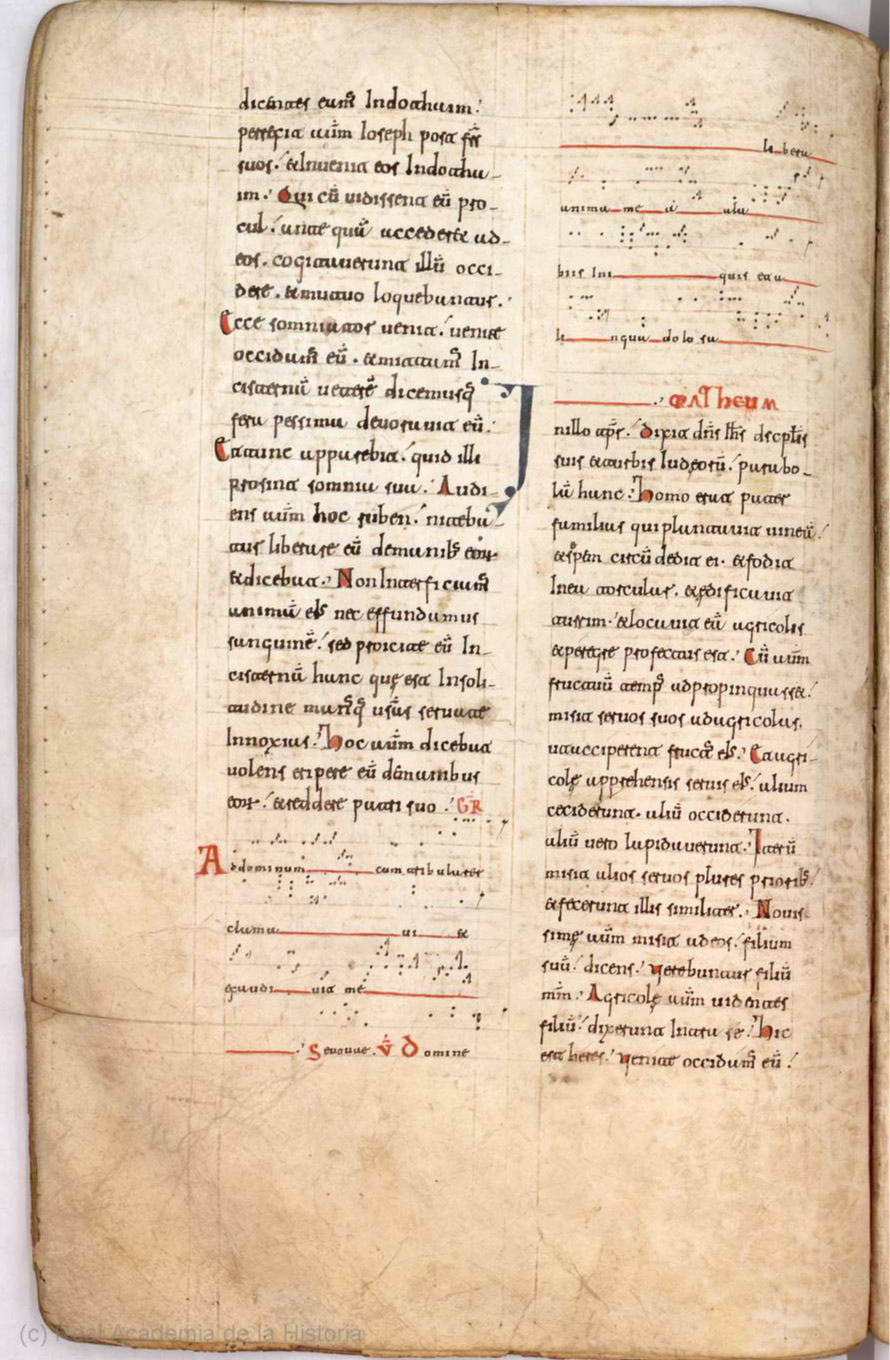 dicentes eam̄ Indothaim.
perrexit aūm Ioseph post fr̄s
suos. et Inuenit eos Indotha-
im. Qui cū uidissent eū pro-
cul. ante quā accederet ad-
eos. cogitauerunt illū occi-
dere. et mutuo loquebantur.
Ecce somniator uenit. uenite
occidam̄ eū. et mittam̄ In-
cisternā ueterē dicemusq̄
fera pessima deuorauit eū.
Et tunc apparebit. quid illi
prosint somnia sua. Audi-
ens aūm hoc ruben. niteba-
tur liberare eū demanib; eor
et dicebat. Non Interficiam̄
animā eīs nec effundamus
sanguinē. sed proicite eū In-
cisternā hanc quę est Insoli-
tudine manūsq̄ ur̄as seruate
Innoxias. Hoc aūm dicebat
uolens eripere eū demanibus
eor. et reddere patri suo. GR
Addominum cum tribularer
clama ui et
exaudi uit me
Seuouae. V̄ Domine
libera
anima me a ala
biis Ini quis et a
li ngua dolosa
MATHEUM
Inillo tp̄r. Dixit dn̄s ih̄s discplīs
suis et turbis Iudeorū. parabo-
lā hanc. Homo erat pater
familias qui plantauit uineā.
et sępem circū dedit ei. et fodit
Inea torculur. et ędificauit
turrim. et locauit eā agricolis
et peregre profectus est. Cū aūm
fructuū temp̄ adpropinquasset.
misit seruos suos ad agricolas,
ut acciperent fruct̄ eīs. Et agri-
colę apprehensis seruis eīs. alium
ceciderunt. aliū occiderunt.
aliū uero lapidauerunt. Iterū
misit alios seruos plures priorib;
et fecerunt illis similiter. Nouis
simę aūm misit ad eos. filium
suū. dicens. uerebuntur filiū
m̄m. Agricolę aūm uidentes
filiū. dixerunt Intra se. Hic
est heres. uenite occidam̄ eū.
(c) Real Academia de la Historia